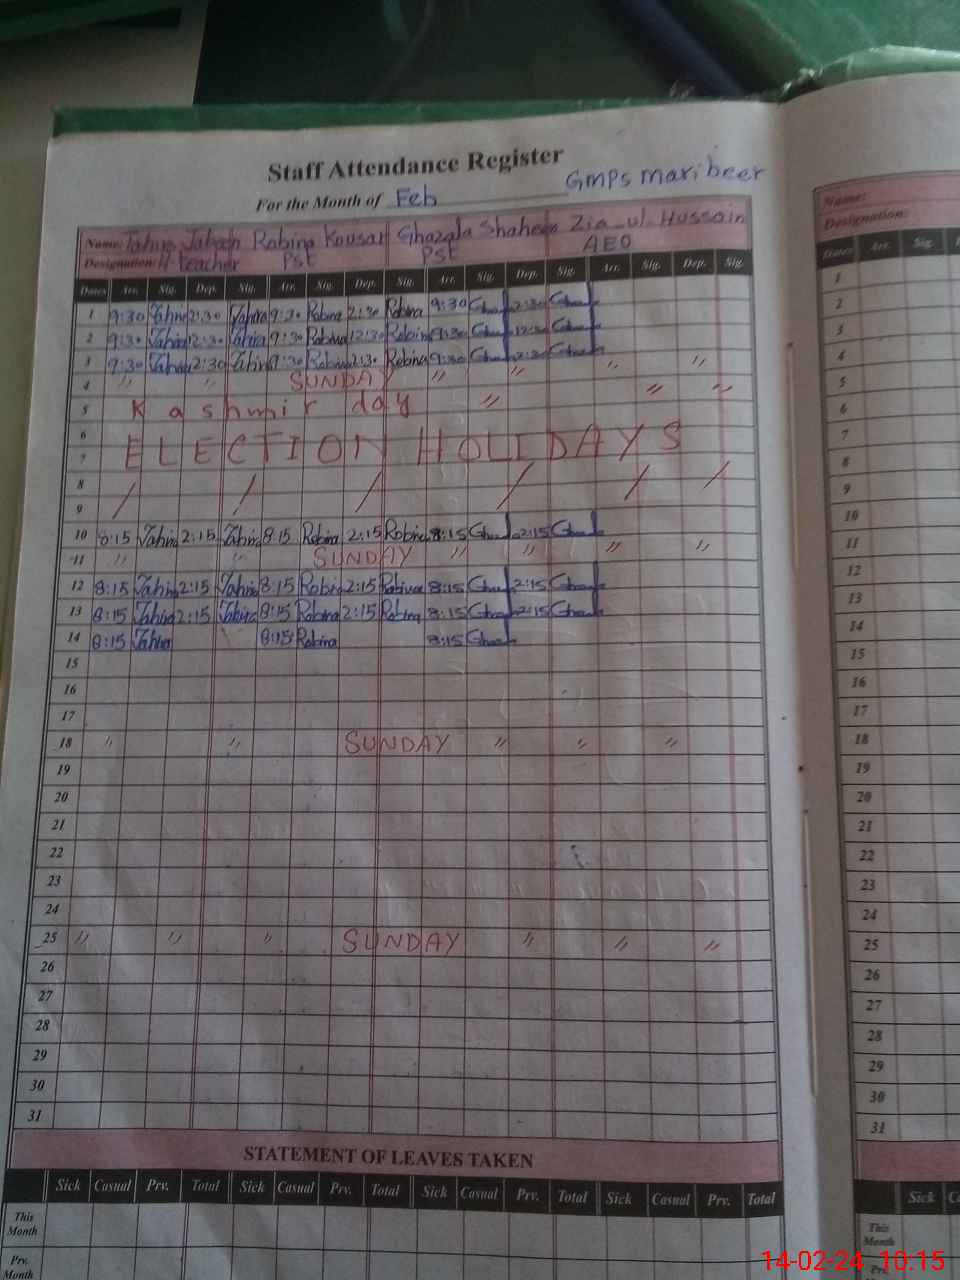 Staff Attendance Register
For the Month of Feb GMPS mari beer
Name: Tahira Jabeen Robina Kousar Ghazala Shaheen Zia-ul-Hussain
Designation: H-teacher Pst Pst AEO
Dates Arr. Sig. Dep. Sig. Arr. Sig. Dep. Sig. Arr. Sig. Dep. Sig. Arr. Sig. Dep. Sig.
1 9:30 Tahira 2:30 Tahira 9:30 Robina 2:30 Robina 9:30 2:30
2 9:30 Tahira 12:30 Tahira 9:30 Robina 12:30 Robina 9:30 12:30
3 9:30 Tahira 2:30 Tahira 9:30 Robina 2:30 Robina 9:30 2:30
4 " " SUNDAY " " " "
5 Kashmir day " " "
6
7 ELECTION HOLIDAYS
8
9 / / / / / /
10 8:15 Tahira 2:15 Tahira 8:15 Robina 2:15 Robina 8:15 2:15
11 " " SUNDAY " " " "
12 8:15 Tahira 2:15 Tahira 8:15 Robina 2:15 Robina 8:15 2:15
13 8:15 Tahira 2:15 Tahira 8:15 Robina 2:15 Robina 8:15 2:15
14 8:15 Tahira 8:15 Robina 8:15
15
16
17
18 " " SUNDAY " " "
19
20
21
22
23
24
25 " " " SUNDAY " " "
26
27
28
29
30
31
STATEMENT OF LEAVES TAKEN
Sick Casual Prv. Total Sick Casual Prv. Total Sick Casual Prv. Total Sick Casual Prv. Total
This
Month
Prv.
Month
Name:
Designation:
Dates Arr. Sig.
1
2
3
4
5
6
7
8
9
10
11
12
13
14
15
16
17
18
19
20
21
22
23
24
25
26
27
28
29
30
31
Sick
This
Month
14-02-24 10:15